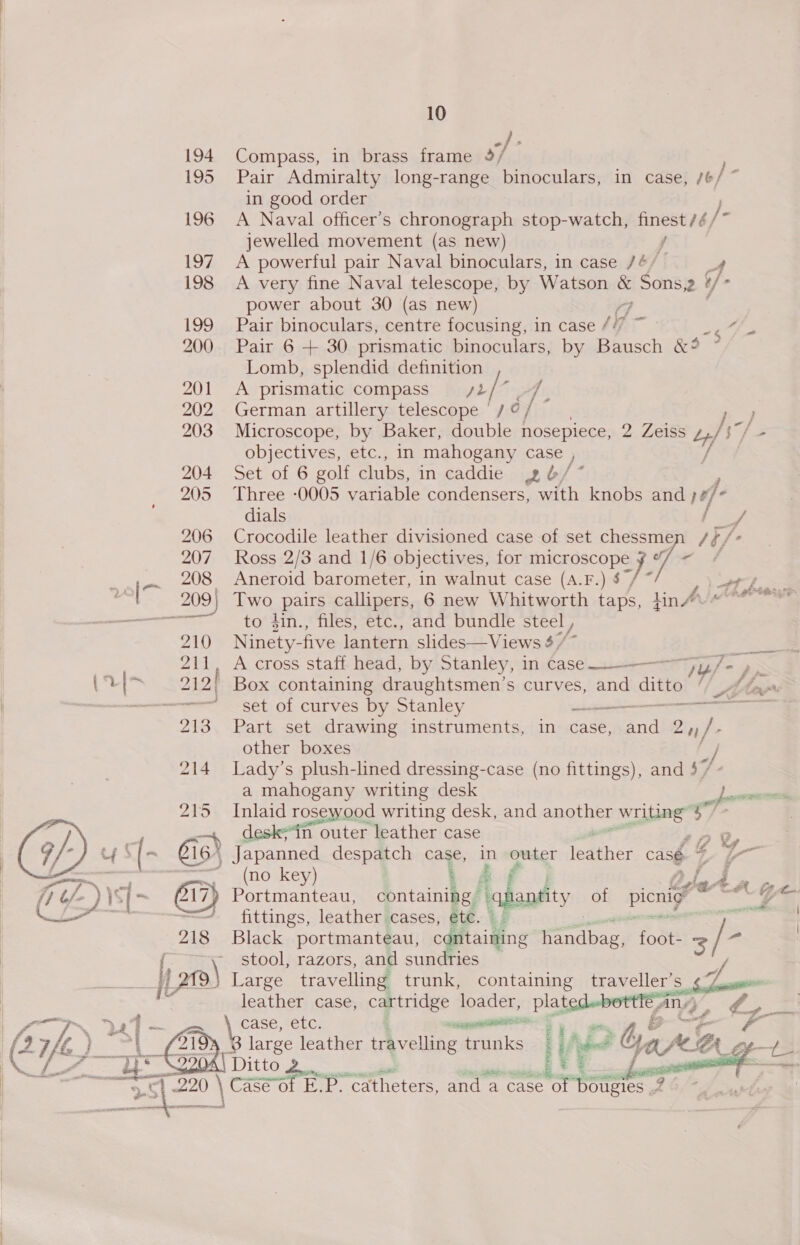 10
194 Compass, in brass frame
195 Pair Admiralty long-range binoculars, in case,
in good order
196 A Naval officer's chronograph stop-watch, finest
jewelled movement (as new)
197 A powerful pair Naval binoculars, in case
198 A very fine Naval telescope, by Watson & Sons,
power about 30 (as new)
199 Pair binoculars, centre focusing, in case
200 Pair 6 + 30 prismatic binoculars, by Bausch &
Lomb, splendid definition
201 A prismatic compass
202 German artillery telescope
203 Microscope, by Baker, double nosepiece, 2 Zeiss
objectives, etc., in mahogany case
204 Set of 6 golf clubs, in caddie
205 Three ·0005 variable condensers, with knobs and
dials
206 Crocodile leather divisioned case of set chessmen
207 Ross 2/3 and 1/6 objectives, for microscope
208 Aneroid barometer, in walnut case (A.F.)
209 Two pairs callipers, 6 new Whitworth taps, ¼in.
to ½in., files, etc., and bundle steel
210 Ninety-five lantern slides—Views
211 A cross staff head, by Stanley, in case
212 Box containing draughtsmen's curves, and ditto
set of curves by Stanley
213 Part set drawing instruments, in case, and 2
other boxes
214 Lady's plush-lined dressing-case (no fittings), and
a mahogany writing desk
215 Inlaid rosewood writing desk, and another writing
desk, in outer leather case
216 Japanned despatch case, in outer leather case
(no key)
217 Portmanteau, containing quantity of picnic
fittings, leather cases, etc.
218 Black portmanteau, containing handbag, foot-
stool, razors, and sundries
219 Large travelling trunk, containing traveller's
leather case, cartridge loader, plated bottle in
case, etc.
219A 3 large leather travelling trunks
220A Ditto 2
220 Case of E.P. catheters, and a case of bougies